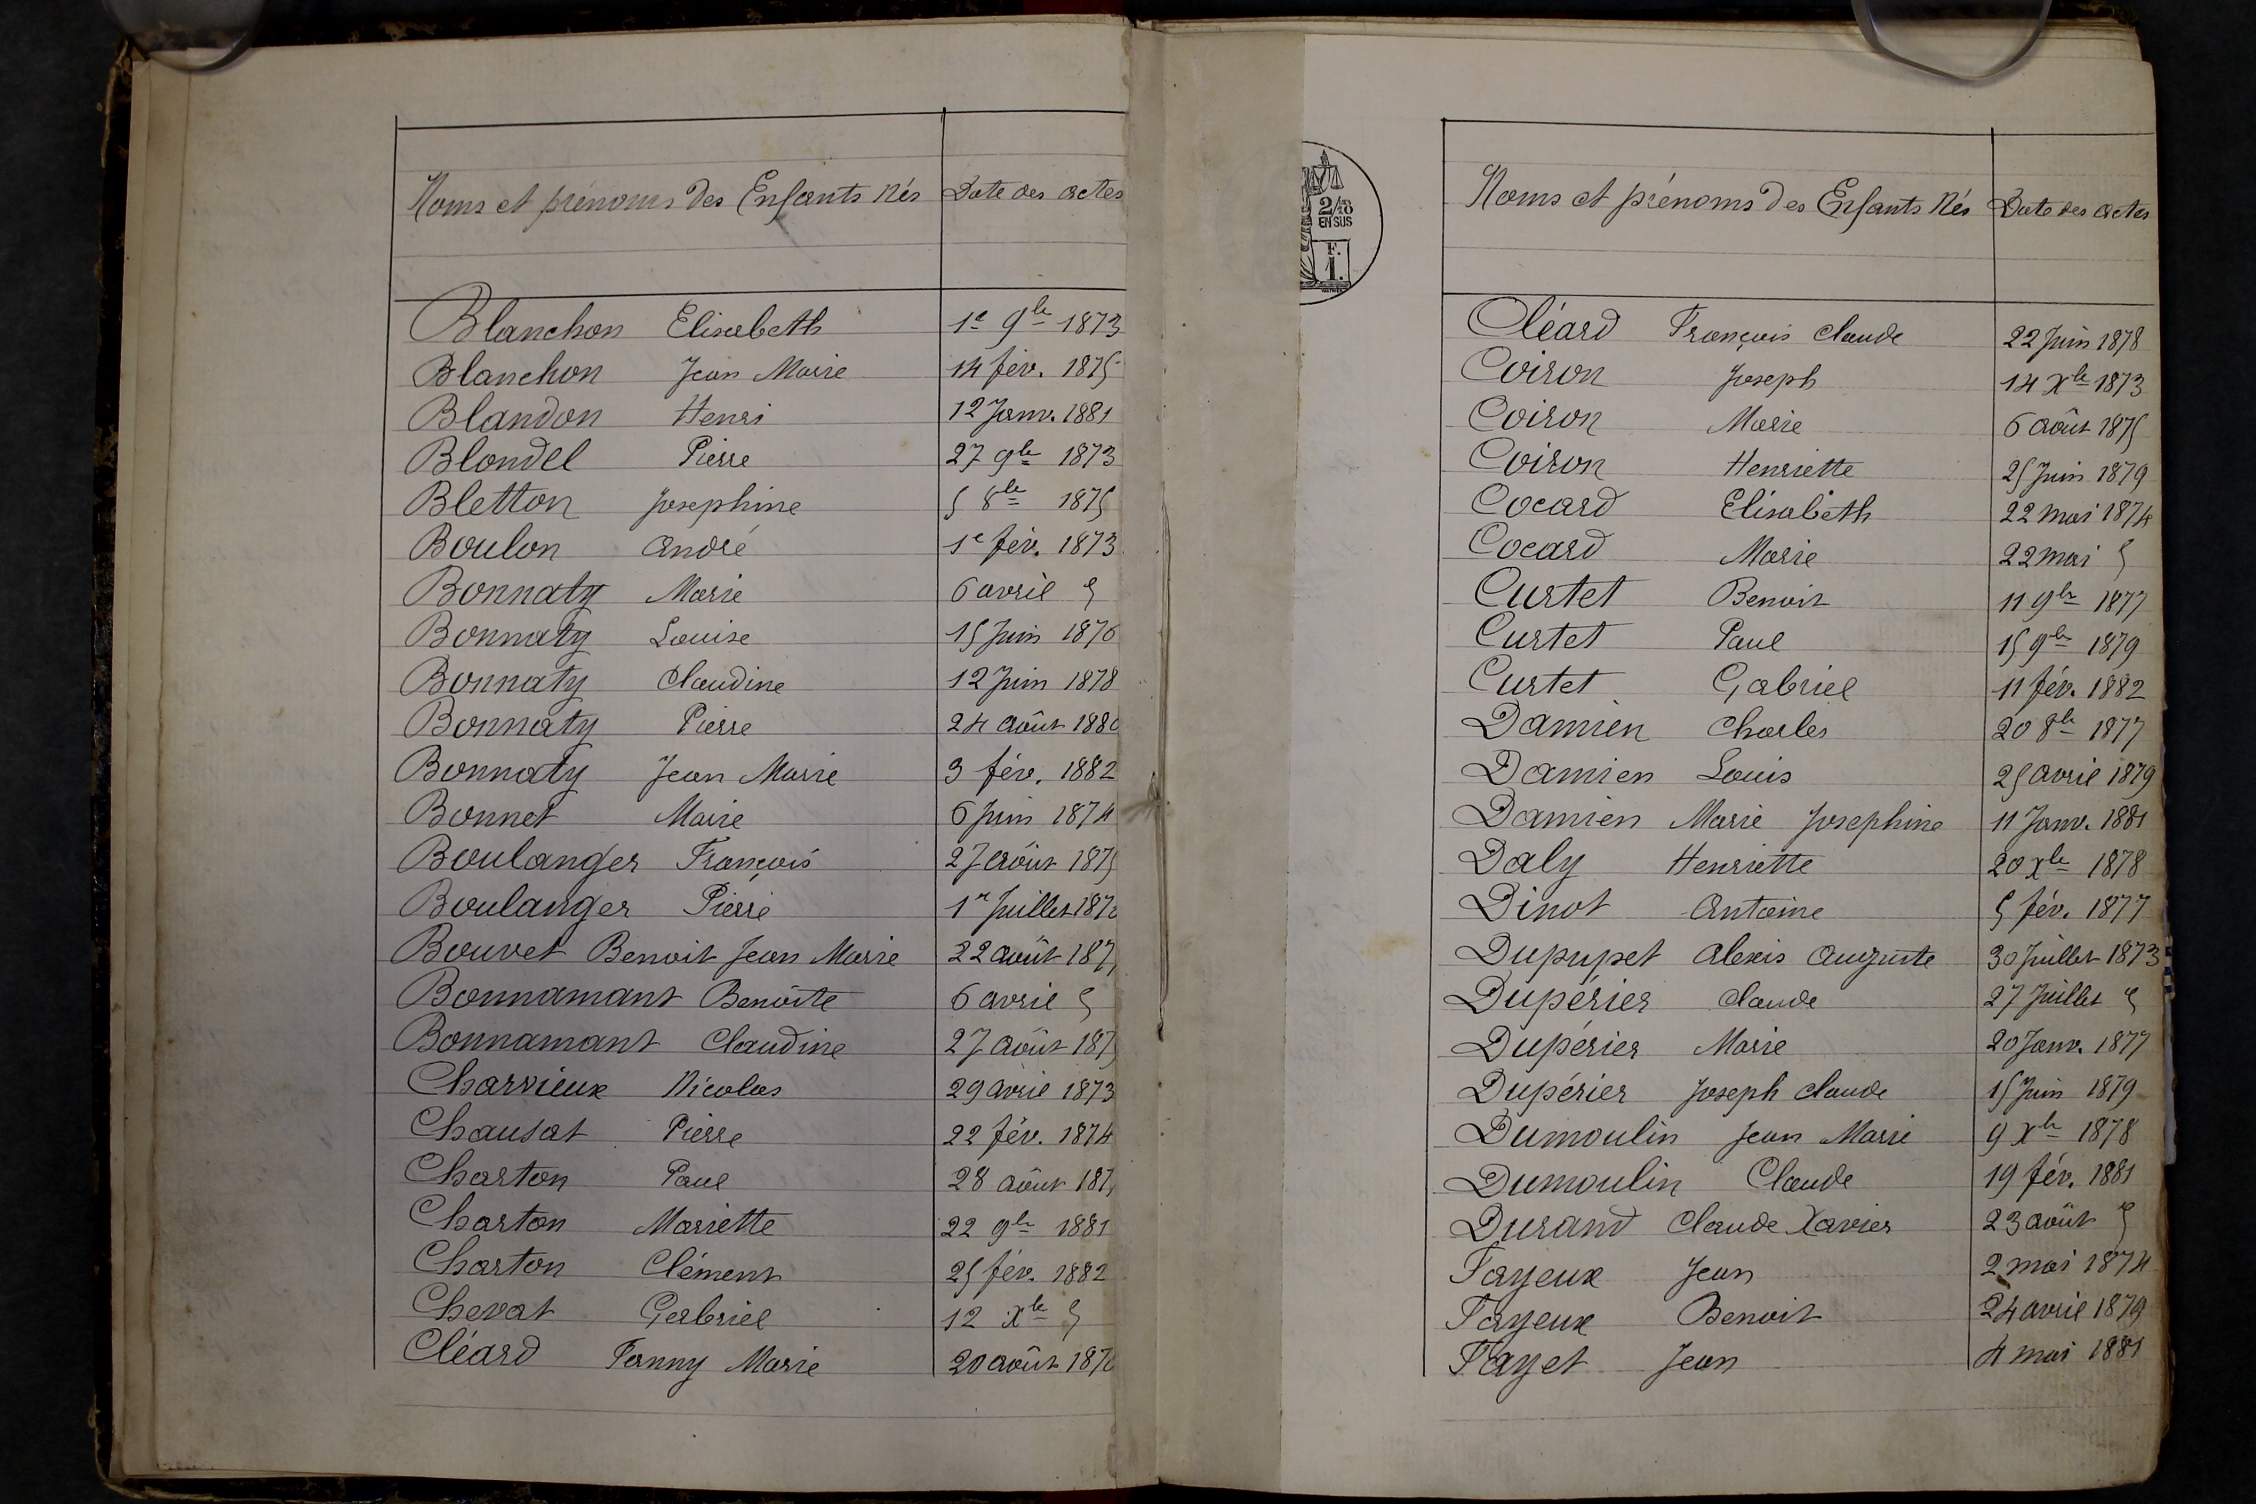 Noms et prénoms des Enfants Nés Date des actes
Blanchon Elisabeth 1e 9bre 1873
Blanchon Jean Marie 14 fév. 1875
Blandon Henri 12 Janv. 1881
Blondel Pierre 27 9bre 1873
Bletton Josephine 5 8bre 1875
Boulon André 1e fév. 1873
Bonnaty Marie 6 avril
Bonnaty Louise 15 Juin 1876
Bonnaty Claudine 12 Juin 1878
Bonnaty Pierre 24 août 1880
Bonnaty Jean Marie 3 fév. 1882
Bonnet Marie 6 Juin 1874
Boulanger François 27 août 1875
Boulanger Pierre 1er Juillet
Bouvet Benoit Jean Marie 22 août
Bonnamant Benoite 6 avril
Bonnamant Claudine 27 août
Charvieux Nicolas 29 avril 1873
Chausat Pierre 22 fév. 1874
Charton Paul 28 août
Charton Mariette 22 9bre 1881
Charton Clément 25 fév. 1882
Chevat Gabriel 12 Xbre
Cléard Fanny Marie 20 août
2/10
EN SUS
F.
1.
Noms et prénoms des Enfants Nés Date des actes
Cléard François Claude 22 Juin 1878
Coiron Joseph 14 Xbre 1873
Coiron Marie 6 août 1875
Coiron Henriette 25 Juin 1879
Cocard Elisabeth 22 mai 1874
Cocard Marie 22 mai
Curtet Benoit 11 9bre 1877
Curtet Paul 15 9bre 1879
Curtet Gabriel 11 fév. 1882
Damien Charles 20 8bre 1877
Damien Louis 25 avril 1879
Damien Marie Josephine 11 Janv. 1881
Daly Henriette 20 Xbre 1878
Dinot Antoine 5 fév. 1877
Dupupet Alexis Auguste 30 Juillet 1873
Dupérier Claude 27 Juillet
Dupérier Marie 20 Janv. 1877
Dupérier Joseph Claude 15 Juin 1879
Dumoulin Jean Marie 9 Xbre 1878
Dumoulin Claude 19 fév. 1881
Durand Claude Xavier 23 août
Fayeux Jean 2 mai 1874
Fayeux Benoit 24 avril 1879
Fayet Jean 4 mai 1881